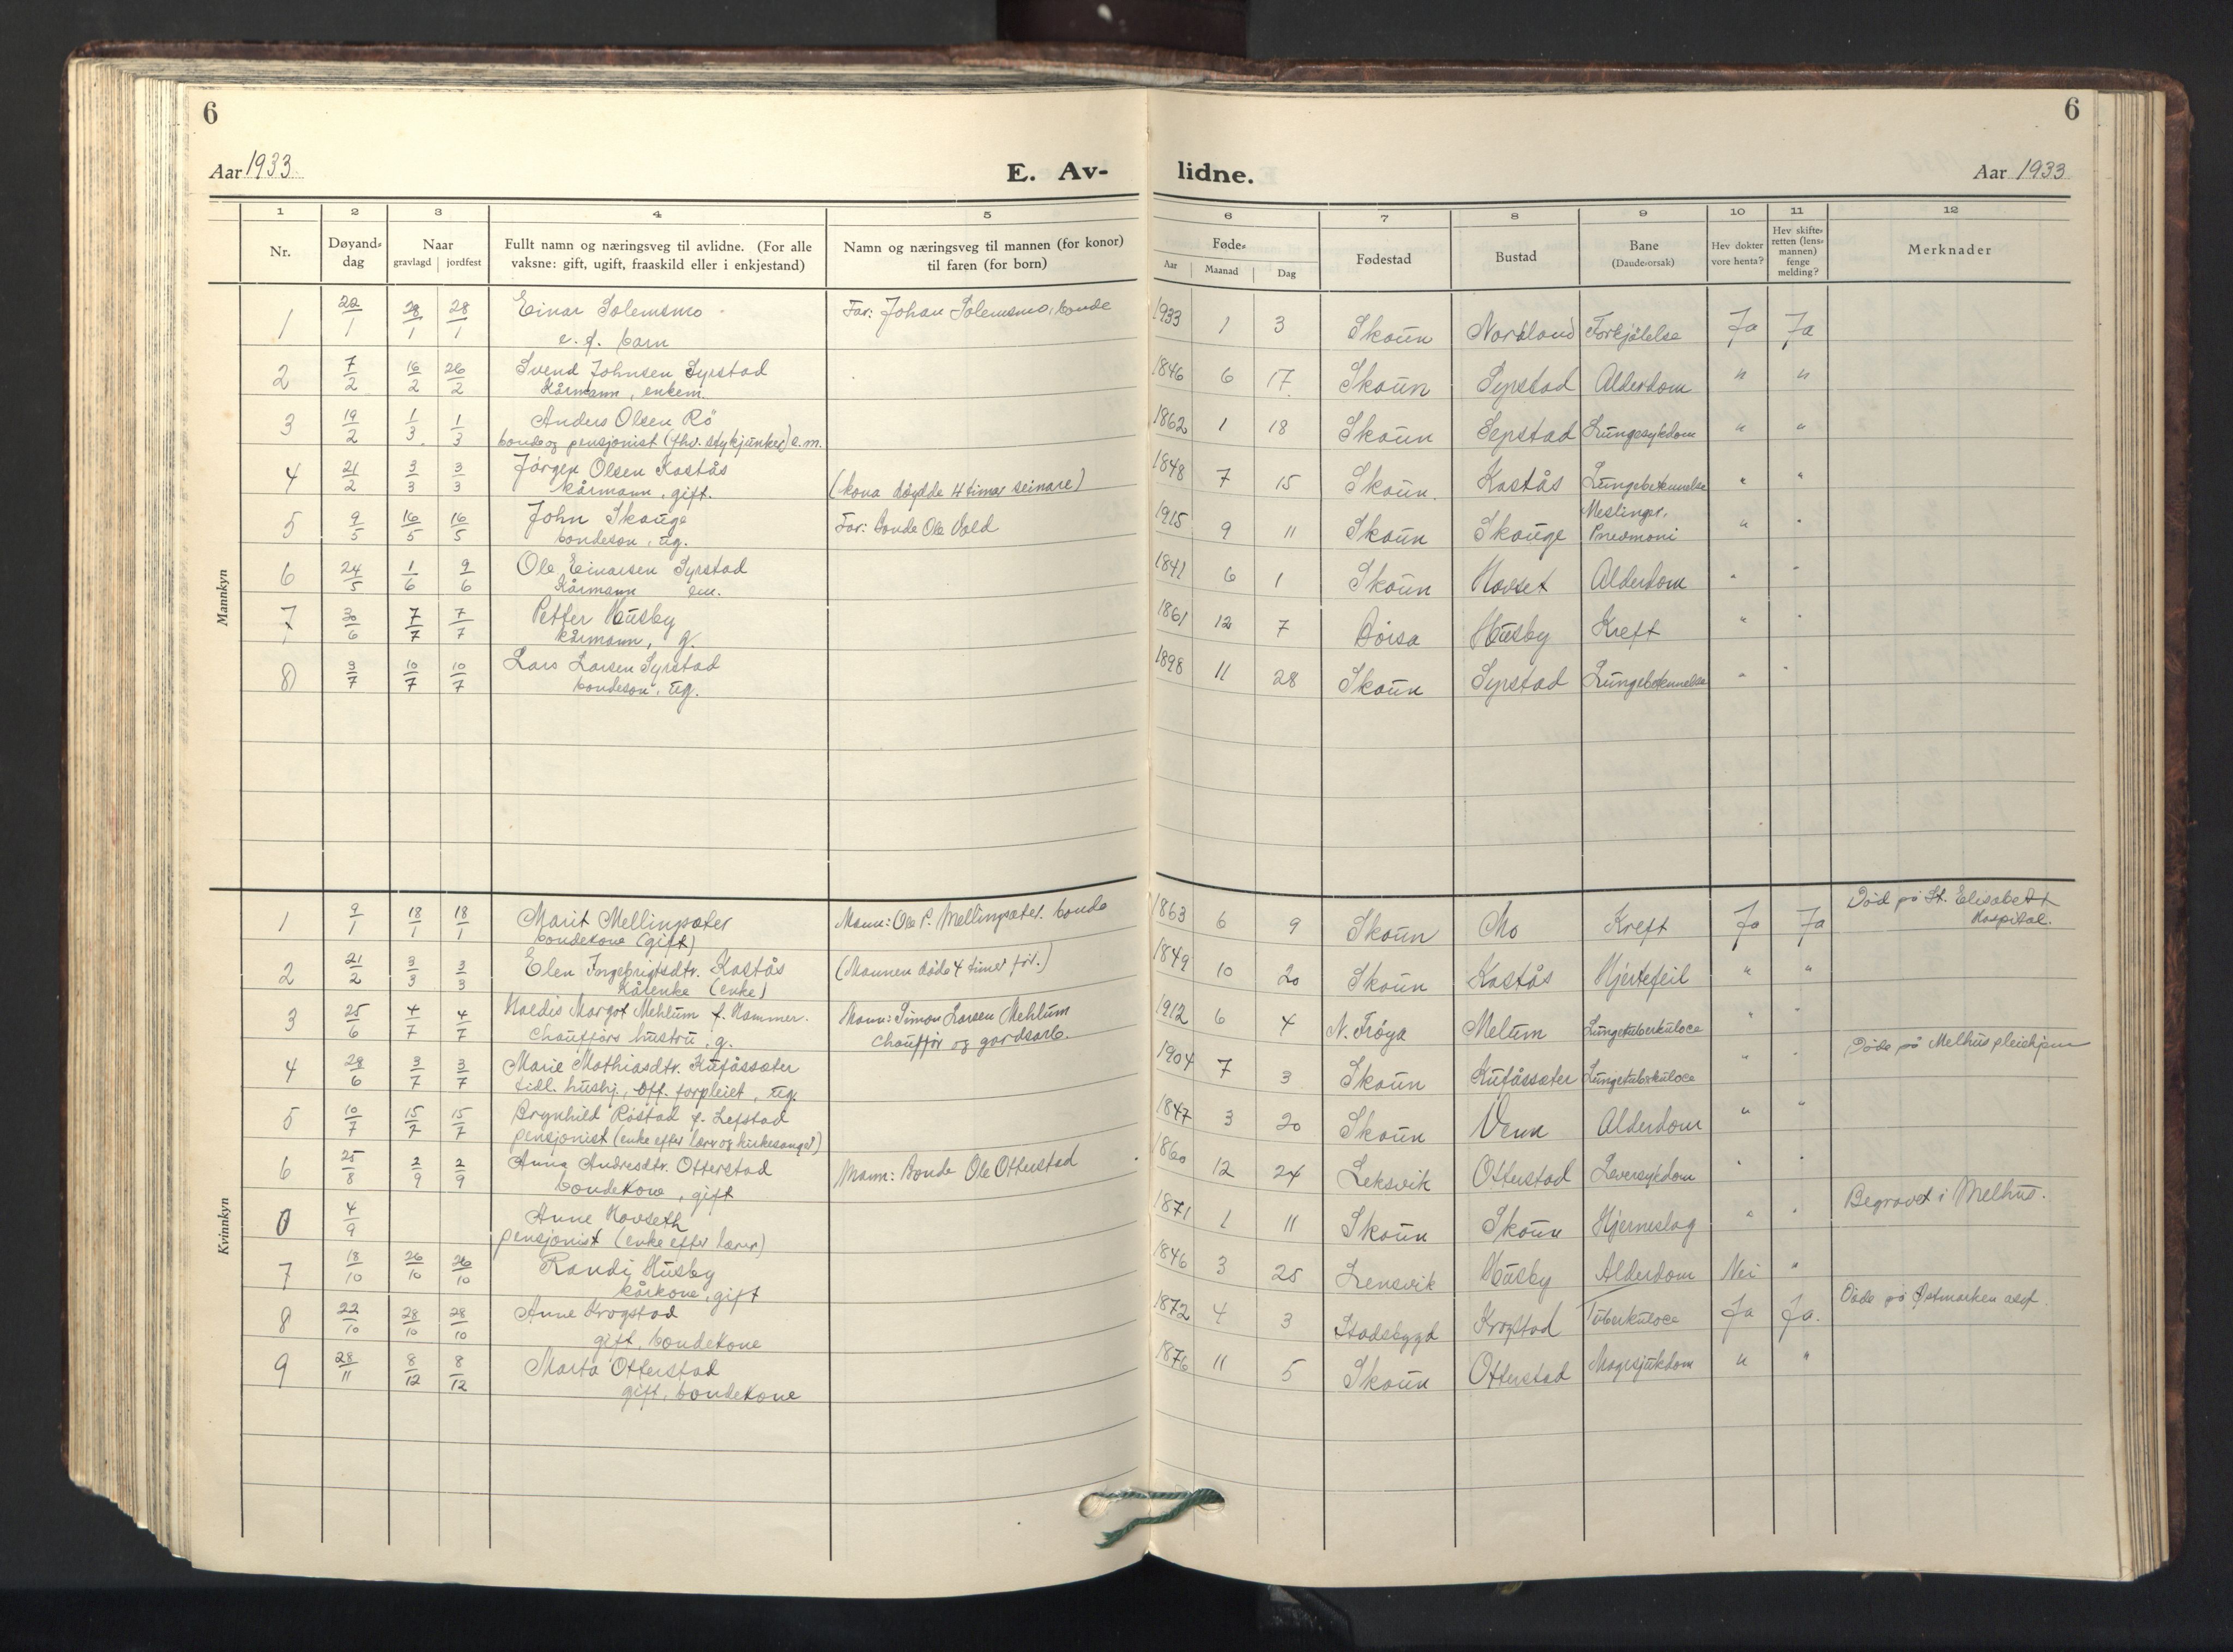 6
6
Aar 1933.
E. Av-
lidne.
Aar 1933
1 2 3 4 5 6 7 8 9 10 11 12
Nr.
Døyand-dag
Naar
gravlagd jordfest
Fullt namn og næringsveg til avlidne. (For alle vaksne: gift, ugift, fraaskild eller i enkjestand)
Namn og næringsveg til mannen (for konor) til faren (for born)
Føde-
Aar Maanad Dag
Fødestad
Bustad
Bane (Daudsorsak)
Hev dokter vore henta?
Hev skifte-retten (lens-mannen) fenge melding?
Merknader
Mannkyn
1 22/1 28/1 28/1 Einar Solemsmo Far: Johan Solemsmo, bonde 1933 1 3 Skaun Nordland Forkjølelse Ja Ja
e. f. barn
2 7/2 16/2 26/2 Svend Johnsen Syrstad 1846 6 17 Skaun Syrstad Alderdom " "
Kårmann, enkem.
3 19/2 1/3 1/3 Anders Olsen Rö 1862 1 18 Skaun Syrstad Lungesykdom " "
bonde og pensjonist (fhv. stykjunker) e.m.
4 21/2 3/3 3/3 Jörgen Olsen Kastås 1848 7 15 Skaun. Kastås Lungebetennelse " "
kårmann, gift. (kona döydde 4 timar seinare)
5 9/5 16/5 16/5 John Skauge Far: bonde Ole Vold 1915 9 11 Skaun Skauge Meslinger, Pneumoni " "
bondeson, ug.
6 24/5 1/6 9/6 Ole Einarsen Syrstad 1841 6 1 Skaun Havset Alderdom " "
Kårmann em.
7 30/6 7/7 7/7 Petter Husby 1861 12 7 Börsa Husby Kreft " "
kårmann, g.
8 9/7 10/7 10/7 Lars Larsen Syrstad 1898 11 28 Skaun Syrstad Lungebetennelse " "
bondeson, ug.
Kvinnkyn
1 9/1 18/1 18/1 Marit Mellingsæter Mann: Ole P. Mellingsæter. bonde 1863 6 9 Skaun Mo Kreft Ja Ja Död på St. Elisabeth Hospital.
bondekone (gift)
2 21/2 3/3 3/3 Elen Ingebrigtsdtr. Kastås (Mannen døde 4 timer før.) 1849 10 20 Skaun Kastås Hjertefeil " "
Kårenke (enke)
3 25/6 4/7 4/7 Haldis Margot Mehlum f. Hammer. Mann: Simon Larsen Mehlum 1912 6 4 N. Frøya Melum Lungetuberkulose " "
Chaufførs hustru, g. chauffør og gardsarb.
4 28/6 3/7 3/7 Marie Mathiasdtr. Kufåssæter 1904 7 3 Skaun Kufåssæter Lungetuberkulose " " Døde på Melhus pleiehjem
tidl. hushj., off. forpleiet, ug.
5 10/7 15/7 15/7 Brynhild Röstad f. Lefstad 1847 3 20 Skaun Venn Alderdom " "
pensjonist (enke efter lærer og kirkesanger)
6 25/8 2/9 2/9 Anna Andresdtr. Otterstad Mann: Bonde Ole Otterstad 1860 12 24 Leksvik Otterstad Leversykdom " "
bondekone, gift
0 4/9 Anne Havseth 1871 1 11 Skaun Skaun Hjerneslag " " Begravet i Melhus.
pensjonist (enke efter lærer)
7 18/10 26/10 26/10 Randi Husby 1846 3 25 Lensvik Husby Alderdom Nei "
kårkone, gift
8 22/10 28/10 28/10 Anne Krogstad 1872 4 3 Stadsbygd Krogstad Tuberkulose Ja Ja. Døde på Østmarken asyl.
gift, bondekone
9 28/11 8/12 8/12 Marta Otterstad 1876 11 5 Skaun Otterstad Magesjukdom " "
gift, bondekone